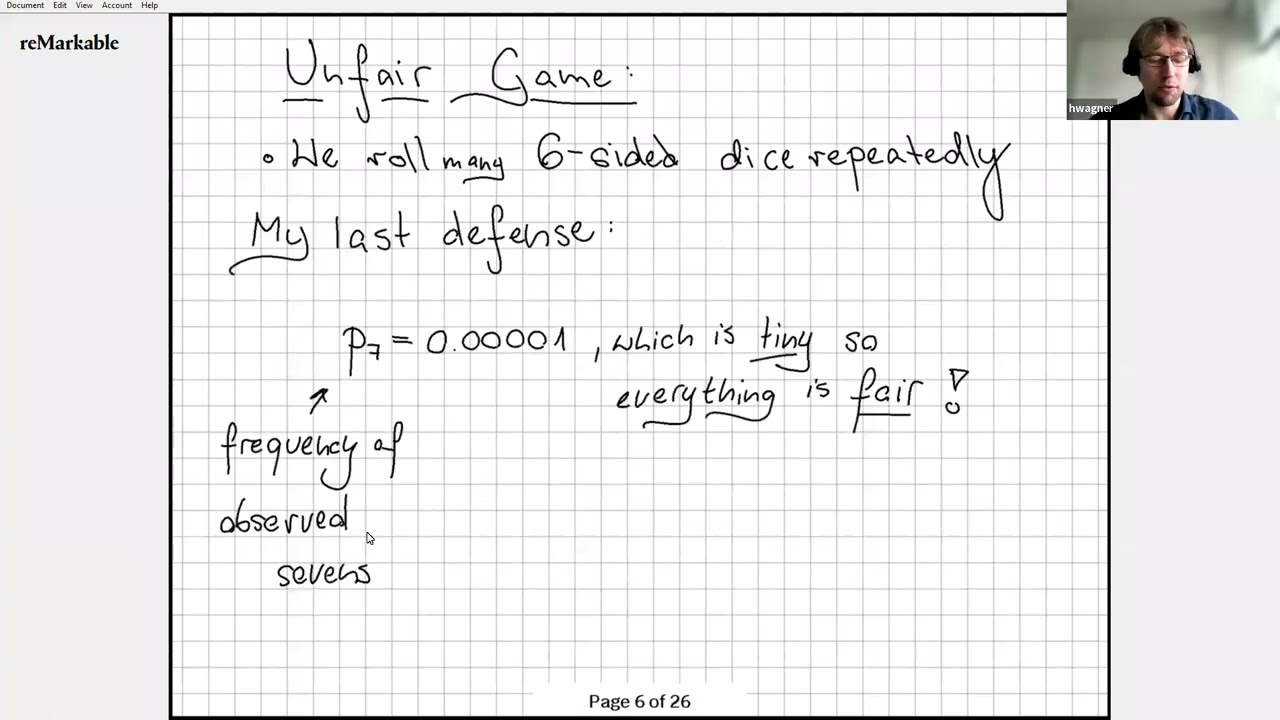 Document Edit View Account Help
reMarkable
hwagner
Unfair Game:
• We roll many 6-sided dice repeatedly
My last defense:
p7 = 0.00001, which is tiny so
everything is fair!
frequency of
observed
sevens
Page 6 of 26